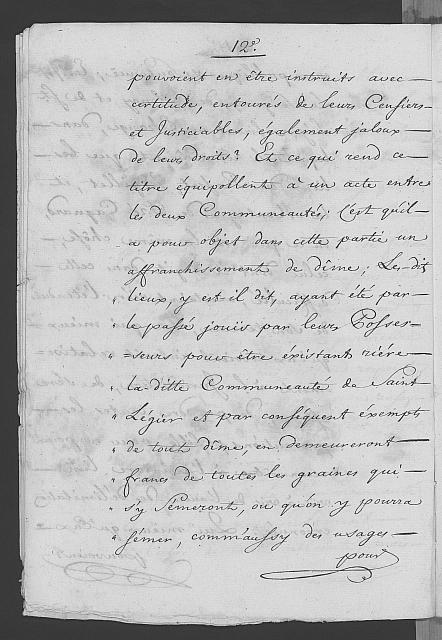 12e.
pouvoient en être instruits avec —
certitude, entourés de leurs Censiers
et Justiciables, également jaloux —
de leurs droits? Et ce qui rend ce —
titre équipollent à un acte entre
les deux Communeautés; C'est qu'il —
a pour objet dans cette partie un
affranchissement de dîme; Les-dits
" lieux, y est-il dit, ayant été par —
" le passé jouis par leurs Posses-
" =seurs pour être éxistants riére —
" la-ditte Communeauté de Saint
" Légier et par conséquent éxempts
" de tout dîme, en demeureront —
" francs de toutes les graines qui —
" s'y Sémeront, ou qu'on y pourra
" sémer, comm'aussy des usages —
pour